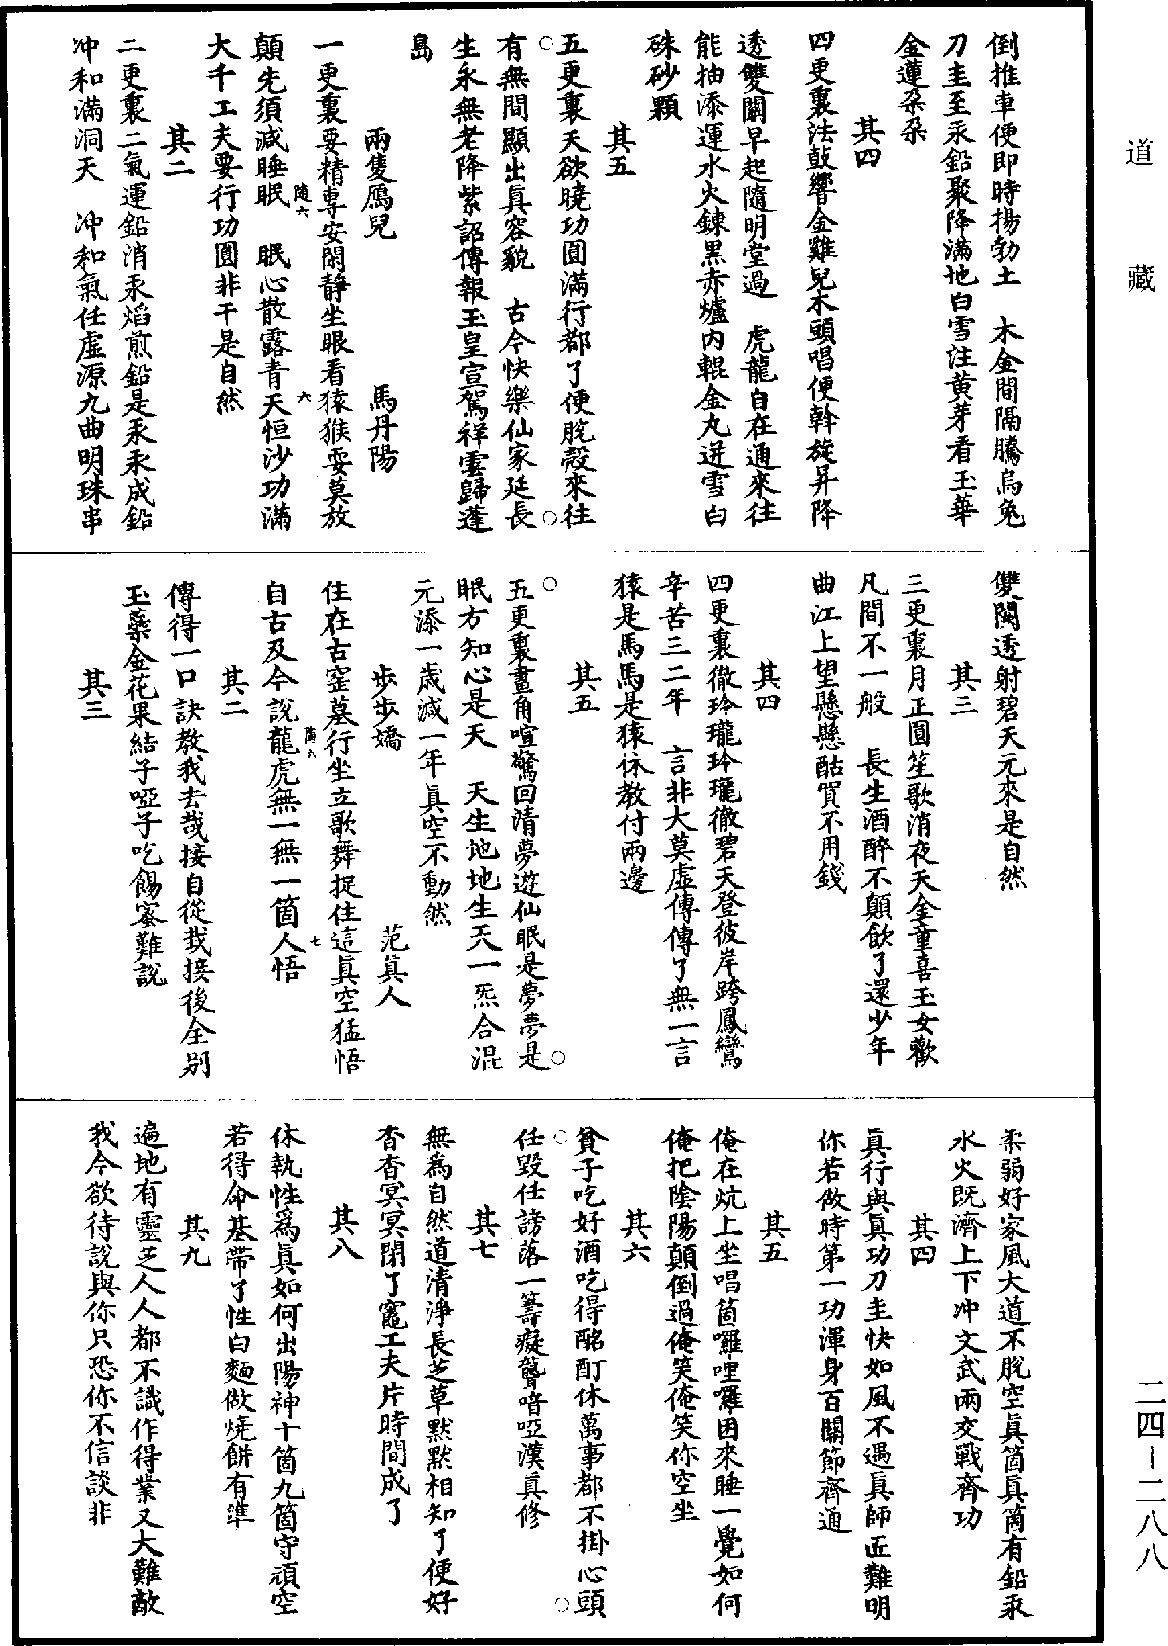 道藏
倒推車便即時揚勃土　木金間隔騰烏兔
刀圭至汞鉛聚降滿地白雪注黃芽看玉華
金蓮朶朶
其四
四更裏法鼓響金雞兒木頭唱便斡旋昇降
透雙關早起隨明堂過　虎龍自在通來往
能抽添運水火鍊黑赤爐內輥金丸迸雪白
硃砂顆
其五
五更裏天欲曉功圓滿行都了便脫殼來往
有無間顯出眞容貌　古今快樂仙家延長
生永無老降紫詔傳報玉皇宣駕祥雲歸蓬
島
兩隻鴈兒　馬丹陽
一更裏要精專安閑靜坐眼看猿猴耍莫放
顛先須減睡眠　眠心散露青天恒沙功滿
大千工夫要行功圓非干是自然
其二
二更裏二氣運鉛消汞焰煎鉛是汞汞成鉛
冲和滿洞天　冲和氣任虛源九曲明珠串
雙關透射碧天元來是自然
其三
三更裏月正圓笙歌消夜天金童喜玉女歡
凡間不一般　長生酒醉不顛飲了還少年
曲江上望懸懸酤買不用錢
其四
四更裏徹玲瓏玲瓏徹碧天登彼岸跨鳳鸞
辛苦三二年　言非大莫虛傳傳了無一言
猿是馬馬是猿休教付兩邊
其五
五更裏畫角喧驚回清夢遊仙眠是夢夢是
眠方知心是天　天生地地生天一炁合混
元添一歲減一年眞空不動然
步步嬌　范眞人
住在古窰墓行坐立歌舞捉住這眞空猛悟
自古及今說龍虎無一無一箇人悟
其二
傳得一口訣教我去哉接自從哉接後全別
玉藥金花果結子啞子吃餳蜜難說
其三
柔弱好家風大道不脫空眞箇眞箇有鉛汞
水火既濟上下冲文武兩交戰齊功
其四
眞行與眞功刀圭快如風不遇眞師匠難明
你若做時第一功渾身百關節齊通
其五
俺在炕上坐唱箇囉哩囉困來睡一覺如何
俺把陰陽顛倒過俺笑俺笑你空坐
其六
貧子吃好酒吃得酩酊休萬事都不掛心頭
任毀任謗落一籌癡聾喑啞漢眞修
其七
無爲自然道清淨長芝草默默相知了便好
杳杳冥冥閉了竈工夫片時間成了
其八
休執性爲眞如何出陽神十箇九箇守頑空
若得命基帶了性白麵做燒餅有準
其九
遍地有靈芝人人都不識作得業又大難敵
我今欲待說與你只恐你不信談非
二四－二八八